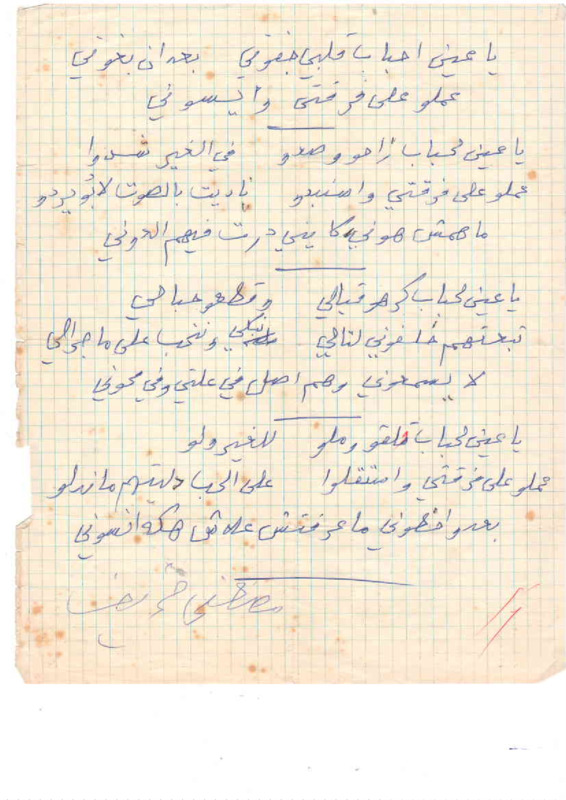 يا عيني احباب قلبي جفوني بعد ان بغوني
عملو على فرقتي وايسوني
يا عيني لحباب راحو وصدو في الغير شدوا
عملو على فرقتي واستبدو ناديت بالصوت لابو يردو
ما همش هوني كايني درت فيهم الدوني
يا عيني لحباب كرهو قبالي وقطعو حبالي
تبعتهم خلفوني لتالي نبكي وننحب على ما جرالي
لا يسمعوني وهم اصل في علتي وفي محوني
يا عيني لحباب قلقو وملو للغير ولو
عملو على فرقتي واستقلوا على الحب دليتهم ما ندلو
بعدو اخطوني ما عرفتش علاش هكه انسوني
مصطفى